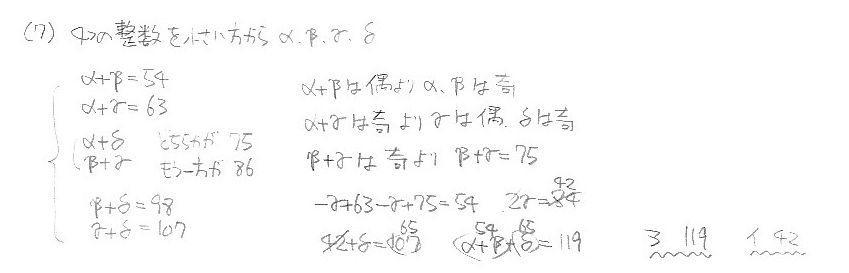 (7) 4つの整数を小さい方から α、β、γ、δ
α+β=54
α+γ=63
α+δ どちらかが 75
β+γ もう一方が 86
β+δ=98
γ+δ=107
α+βは偶より α、βは奇
α+γは奇より γは偶、δは奇
β+γは奇より β+γ=75
-γ+63-γ+75=54 2γ=84 42
42+δ=107 65 (α+β+δ)=119 54 65
ろ 119 イ 42